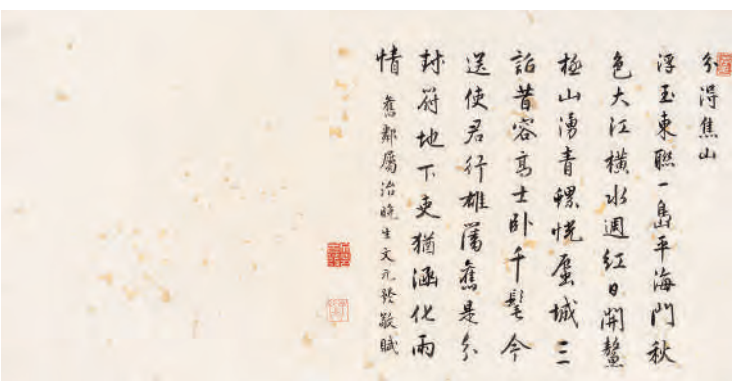 分得焦山
浮玉東聯一島平海門秋
色大江橫水週紅日開鰲
極山湧青螺恍蜃城三
詔昔容高士卧千髦今
送使君行雄藩舊是分
封符地下吏猶涵化雨
情 舊鄰屬治晚生文元發敬賦